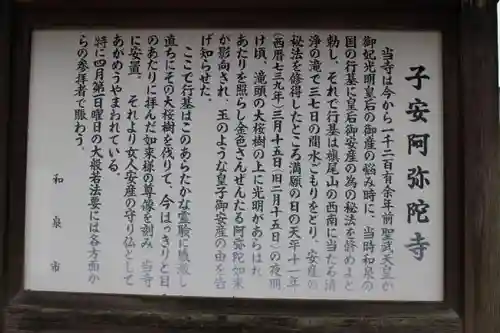 子安阿弥陀寺
当寺は今から一千二百有余年前聖武天皇が
御妃光明皇后の御産の悩み時に、当時和泉の
国の行基に皇后御安産の為の秘法を修めよと
勅し、それで行基は槙尾山の西南に当たる清
浄の滝で三七日の間水ごもりをとり、安産の
秘法を修得したところ満願の日の天平十一年
(西暦七三九年)三月十五日(旧二月十五日)の夜明
け頃、滝頭の大桜樹の上に光明があらはれ
あたりを照らし金色さんぜんたる阿弥陀如来
が影向され、玉のような皇子御安産の由を告
げ知らせた。
ここで行基はこのあらたかな霊験に感激し
直ちにその大桜樹を伐りて、今はっきりと目
のあたりに拝んだ如来様の尊像を刻み 当寺
に安置。 それより女人安産の守り仏として
あがめうやまわれている。
特に四月第二日曜日の大般若法要には各方面か
らの参拝者で賑わう。
和泉市